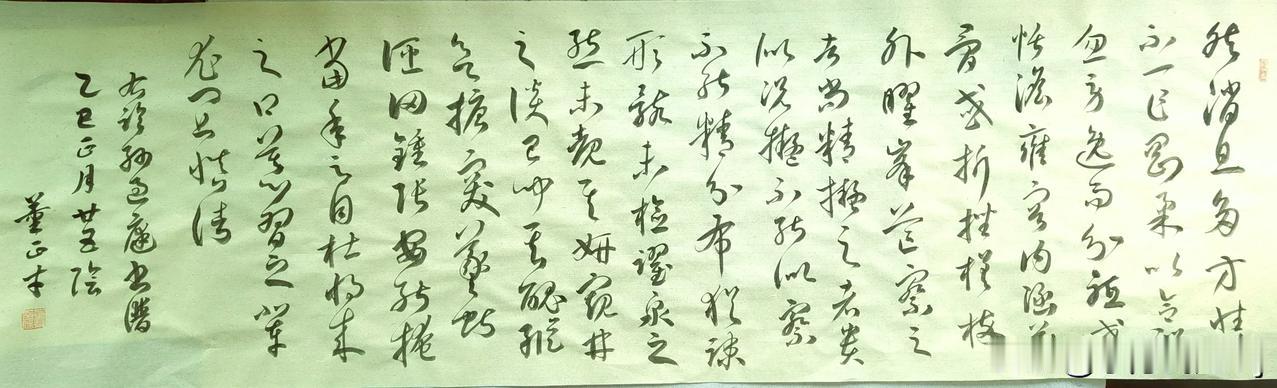 然消息多方性
不一乍剛柔以合體
忽勞逸而分驅或
恬澹雍容內涵筋
骨或折挫槎枿
外曜峯芒察之
者尚精擬之者貴
似况擬不能似察
不能精分布猶疎
形骸未檢躍泉之
態未覩其妍窺井
之談已聞其醜縱
欲搪突羲獻
誣罔鍾張安能掩
當年之目杜將來
之口慕習之輩
尤宜慎諸
右臨孫過庭書譜
乙巳正月廿五陰
董正才